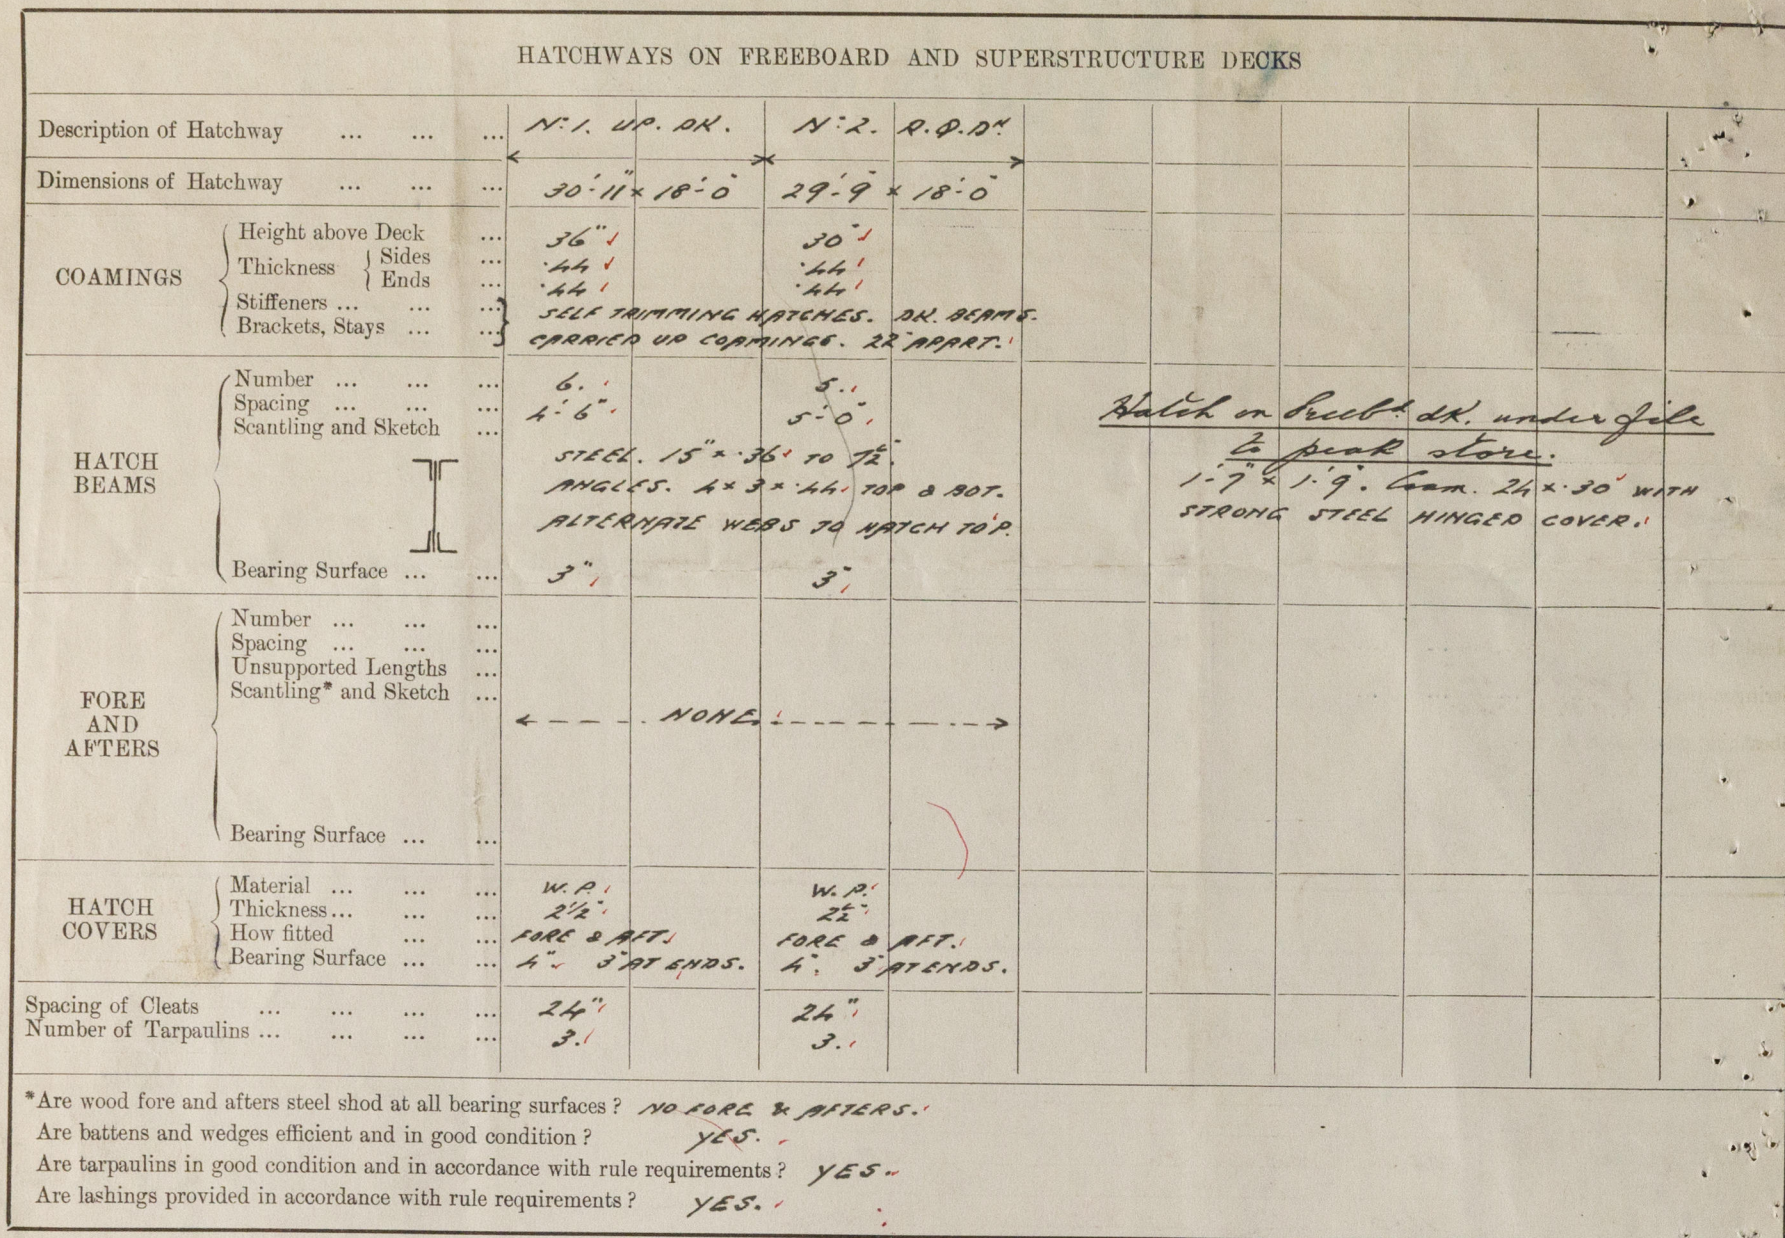 HATCHWAYS ON FREEBOARD AND SUPERSTRUCTURE DECKS
Description of Hatchway ... ... ... Nº1. UP. DK. Nº2. R.Q.Dk
Dimensions of Hatchway ... ... ... 30'-11" x 18'-0" 29'-9" x 18'-0"
COAMINGS
Height above Deck ... 36" 30"
Thickness { Sides ... .44 .44
Ends ... .44 .44
Stiffeners ... ... ... SELF TRIMMING HATCHES. DK. BEAMS.
Brackets, Stays ... ... CARRIED UP COAMINGS. 22" APART.
HATCH BEAMS
Number ... ... ... 6. 5.
Spacing ... ... ... 4'-6" 5'-0"
Scantling and Sketch ...
STEEL. 15" x .36 TO 7½".
ANGLES. 4 x 3 x .44 TOP & BOT.
ALTERNATE WEBS TO HATCH TOP.
Bearing Surface ... ... 3" 3"
Hatch on Freebd. dk. under f'cle
to peak store.
1'-9" x 1'-9". Coam. 24 x .30 WITH
STRONG STEEL HINGED COVER.
FORE AND AFTERS
Number ... ... ...
Spacing ... ... ...
Unsupported Lengths ...
Scantling* and Sketch ...
NONE.
Bearing Surface ... ...
HATCH COVERS
Material ... ... ... W.P. W.P.
Thickness ... ... ... 2½" 2½"
How fitted ... ... FORE & AFT. FORE & AFT.
Bearing Surface ... ... 4". 3" AT ENDS. 4". 3" AT ENDS.
Spacing of Cleats ... ... ... ... 24" 24"
Number of Tarpaulins ... ... ... ... 3. 3.
*Are wood fore and afters steel shod at all bearing surfaces? NO FORE & AFTERS.
Are battens and wedges efficient and in good condition? YES.
Are tarpaulins in good condition and in accordance with rule requirements? YES.
Are lashings provided in accordance with rule requirements? YES.